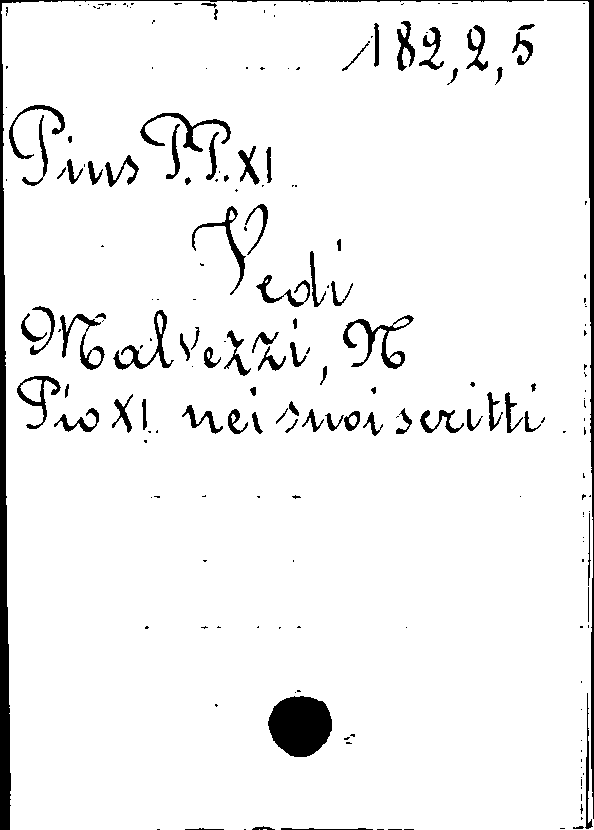 182,2,5
Pius P.P. XI
Vedi
Malvezzi, N
Pio XI nei suoi scritti